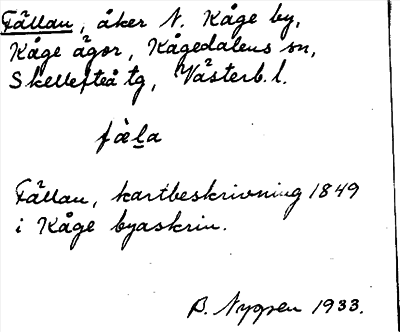 Fällan, åker N. Kåge by,
Kåge ägor, Kågedalens sn,
Skellefteå tg, Västerb. l.
fàḻa
Fällan, kartbeskrivning 1849
i Kåge byaskrin.
B. Nygren 1933.